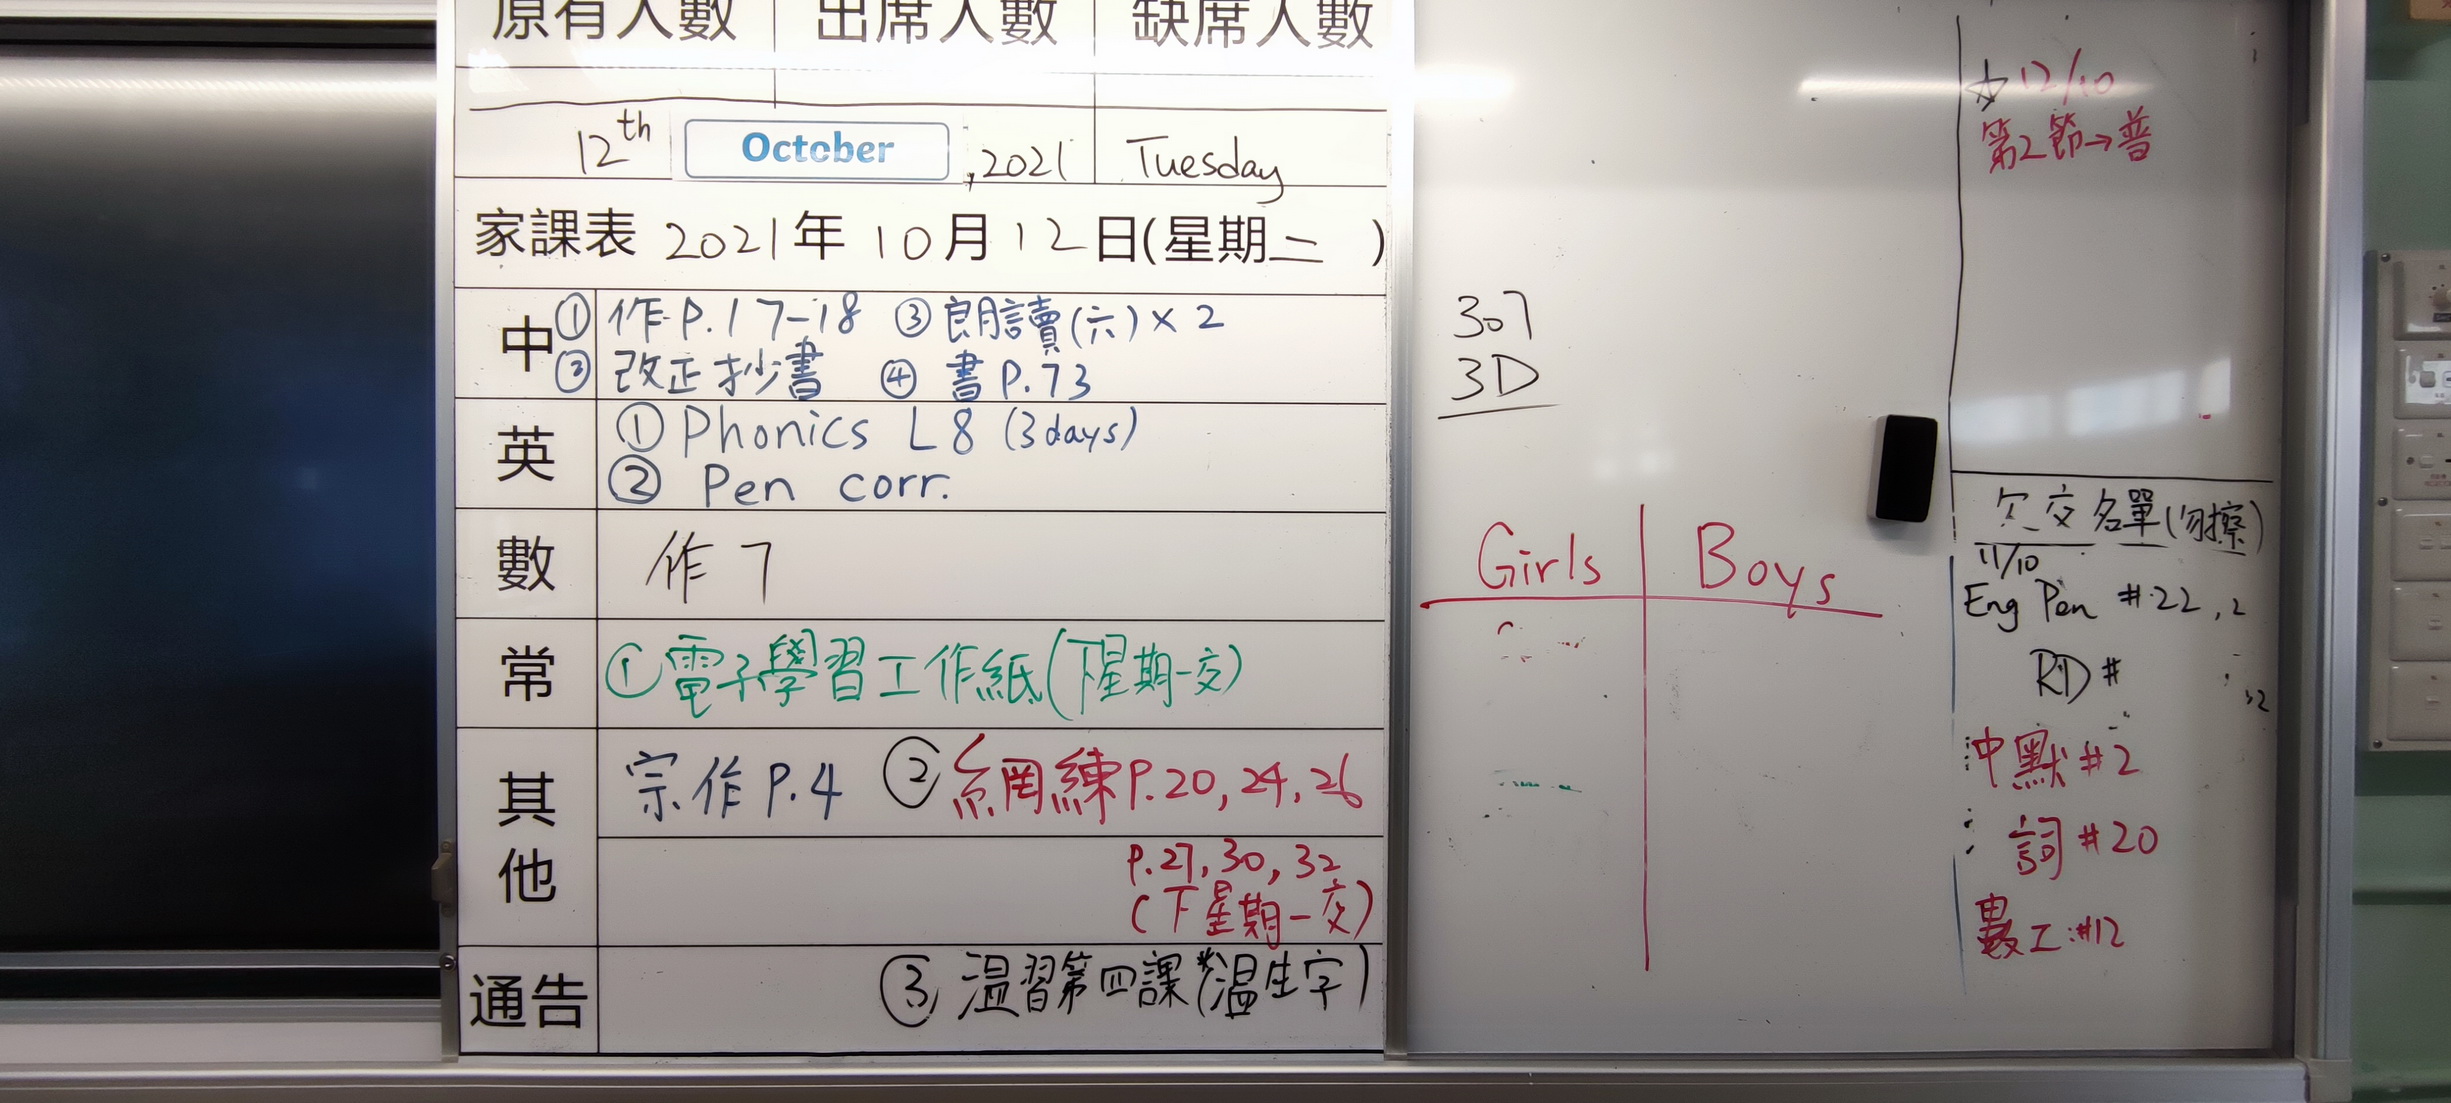 原有人數 出席人數 缺席人數
12th October ,2021 Tuesday
家課表 2021年 10月12日(星期二 )
中 ①作 P.17-18 ③朗讀(六)×2
②改正抄書 ④書 P.73
英 ① Phonics L8 (3days)
② Pen corr.
數 作7
常 ①電子學習工作紙(下星期一交)
其他 宗作 P.4 ②網練 P.20, 24, 26
P.27, 30, 32
(下星期一交)
通告 ③溫習第四課(*溫生字)
307
3D
Girls Boys
☆ 12/10
第2節→普
欠交名單(勿擦)
11/10
Eng Pen #22, 2
RD #
32
中默 #2
詞 #20
數工: #12